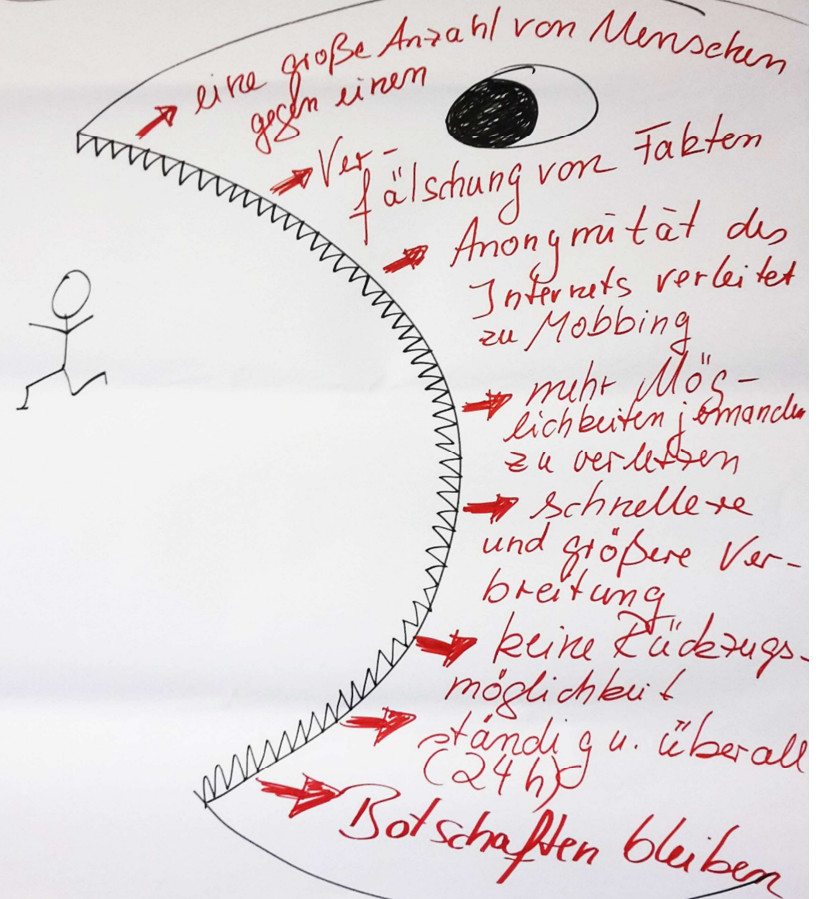 eine große Anzahl von Menschen
gegen einen
Ver-
fälschung von Fakten
Anonymität des
Internets verleitet
zu Mobbing
mehr Mög-
lichkeiten jemanden
zu verletzen
schnellere
und größere Ver-
breitung
keine Rückzugs-
möglichkeit
ständig u. überall
(24h)
Botschaften bleiben